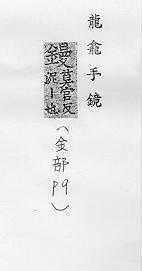 龍龕手鏡
鏝莫官反
泥丨也
(金部
P9)